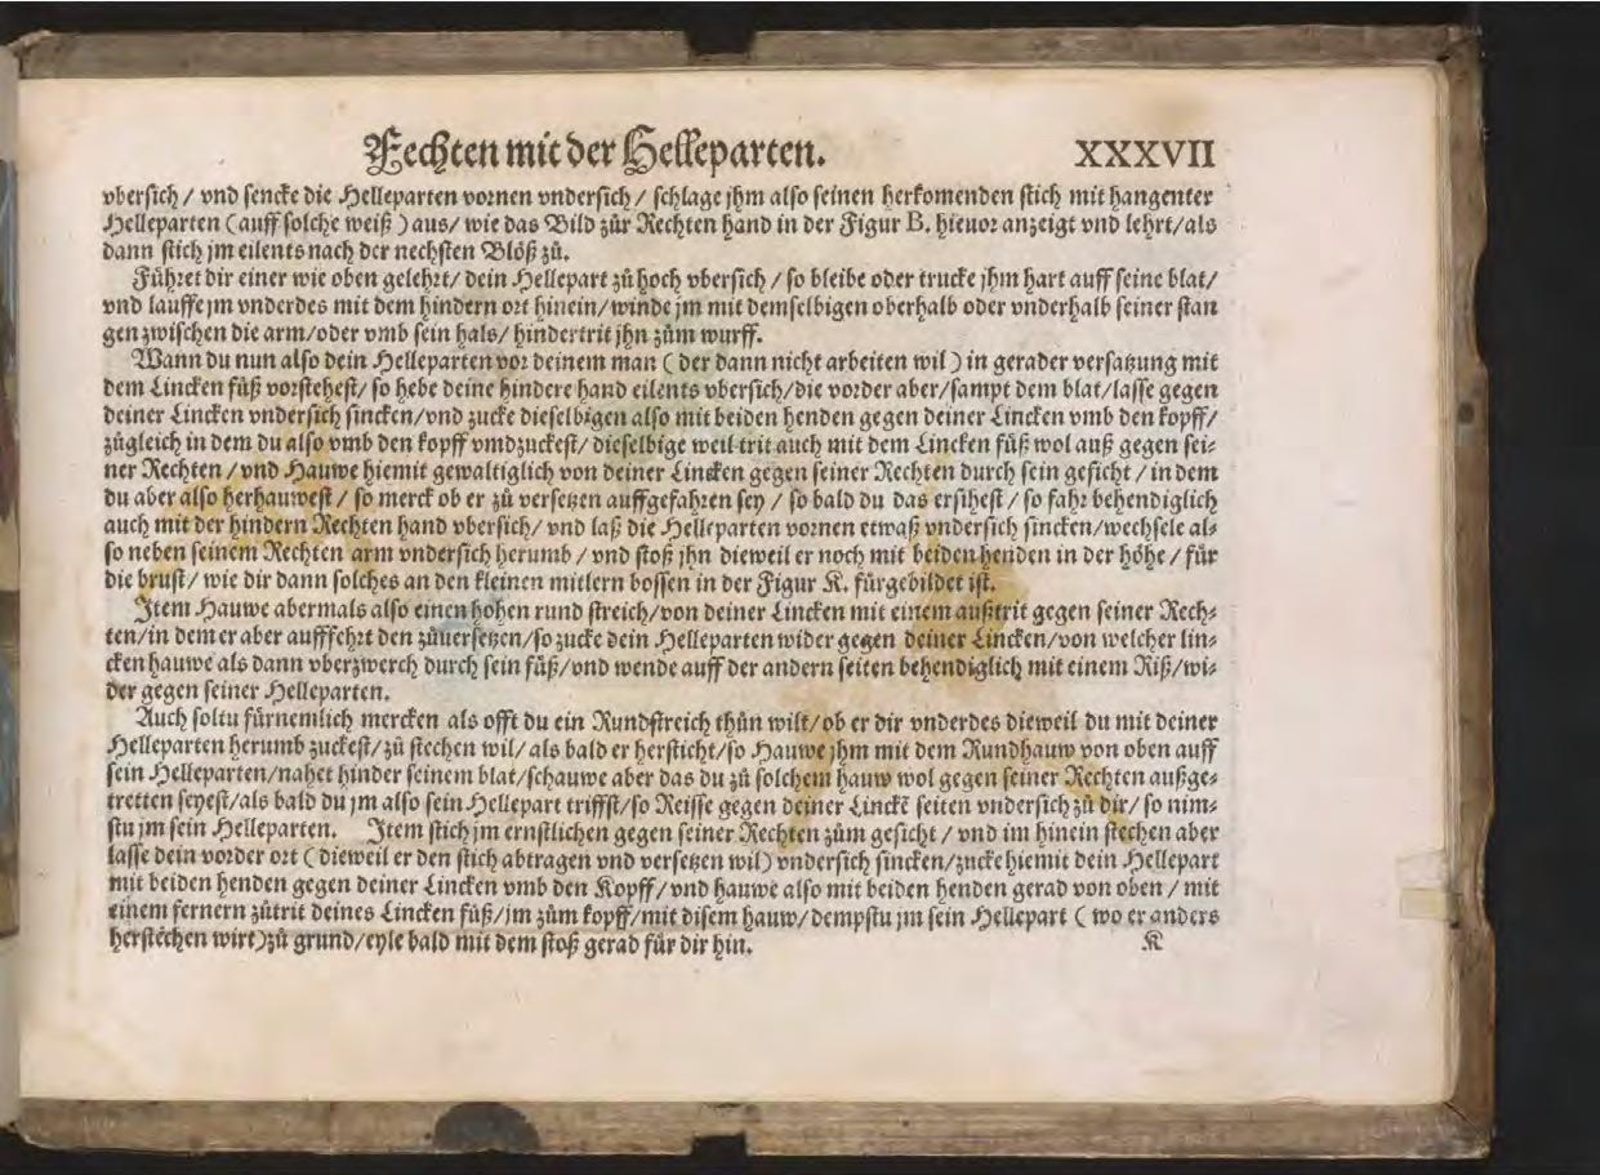 Fechten mit der Helleparten. XXXVII
vbersich / vnd sencke die Helleparten vornen vndersich / schlage jhm also seinen herkomenden stich mit hangenter
Helleparten (auff solche weiß) aus / wie das Bild zůr Rechten hand in der Figur B. hieuor anzeigt vnd lehrt / als
dann stich jm eilents nach der nechsten Blöß zů.
Führet dir einer wie oben gelehrt / dein Hellepart zů hoch vbersich / so bleibe oder trucke jhm hart auff seine blat /
vnd lauffe jm vnderdes mit dem hindern ort hinein / winde jm mit demselbigen oberhalb oder vnderhalb seiner stan
gen zwischen die arm / oder vmb sein hals / hindertrit jhn zům wurff.
Wann du nun also dein Helleparten vor deinem man (der dann nicht arbeiten wil) in gerader versatzung mit
dem Lincken fůß vorstehest / so hebe deine hindere hand eilents vbersich / die vorder aber / sampt dem blat / lasse gegen
deiner Lincken vndersich sincken / vnd zucke dieselbigen also mit beiden henden gegen deiner Lincken vmb den kopff /
zůgleich in dem du also vmb den kopff vmbzuckest / dieselbige weil trit auch mit dem Lincken fůß wol auß gegen sei-
ner Rechten / vnd Hauwe hiemit gewaltiglich von deiner Lincken gegen seiner Rechten durch sein gesicht / in dem
du aber also herhauwest / so merck ob er zů versetzen auffgefahren sey / so bald du das ersihest / so fahr behendiglich
auch mit der hindern Rechten hand vbersich / vnd laß die Helleparten vornen etwaß vndersich sincken / wechsele al-
so neben seinem Rechten arm vndersich herumb / vnd stoß jhn dieweil er noch mit beiden henden in der höhe / für
die brust / wie dir dann solches an den kleinen mitlern bossen in der Figur K. fürgebildet ist.
Item Hauwe abermals also einen hohen rund streich / von deiner Lincken mit einem außtrit gegen seiner Rech-
ten / in dem er aber aufffehrt den zůuersetzen / so zucke dein Helleparten wider gegen deiner Lincken / von welcher lin-
cken hauwe als dann vberzwerch durch sein fůß / vnd wende auff der andern seiten behendiglich mit einem Riß / wi-
der gegen seiner Helleparten.
Auch soltu fürnemlich mercken als offt du ein Rundstreich thůn wilt / ob er dir vnderdes dieweil du mit deiner
Helleparten herumb zuckest / zů stechen wil / als bald er hersticht / so Hauwe jhm mit dem Rundhauw von oben auff
sein Helleparten / nahet hinder seinem blat / schauwe aber das du zů solchem hauw wol gegen seiner Rechten außge-
tretten seyest / als bald du jm also sein Hellepart triffst / so Reisse gegen deiner Linckē seiten vndersich zů dir / so nim-
stu jm sein Helleparten. Item stich jm ernstlichen gegen seiner Rechten zům gesicht / vnd im hinein stechen aber
lasse dein vorder ort (dieweil er den stich abtragen vnd versetzen wil) vndersich sincken / zucke hiemit dein Hellepart
mit beiden henden gegen deiner Lincken vmb den Kopff / vnd hauwe also mit beiden henden gerad von oben / mit
einem fernern zůtrit deines Lincken fůß / jm zům kopff / mit disem hauw / dempstu jm sein Hellepart (wo er anders
herstechen wirt) zů grund / eyle bald mit dem stoß gerad für dir hin. K